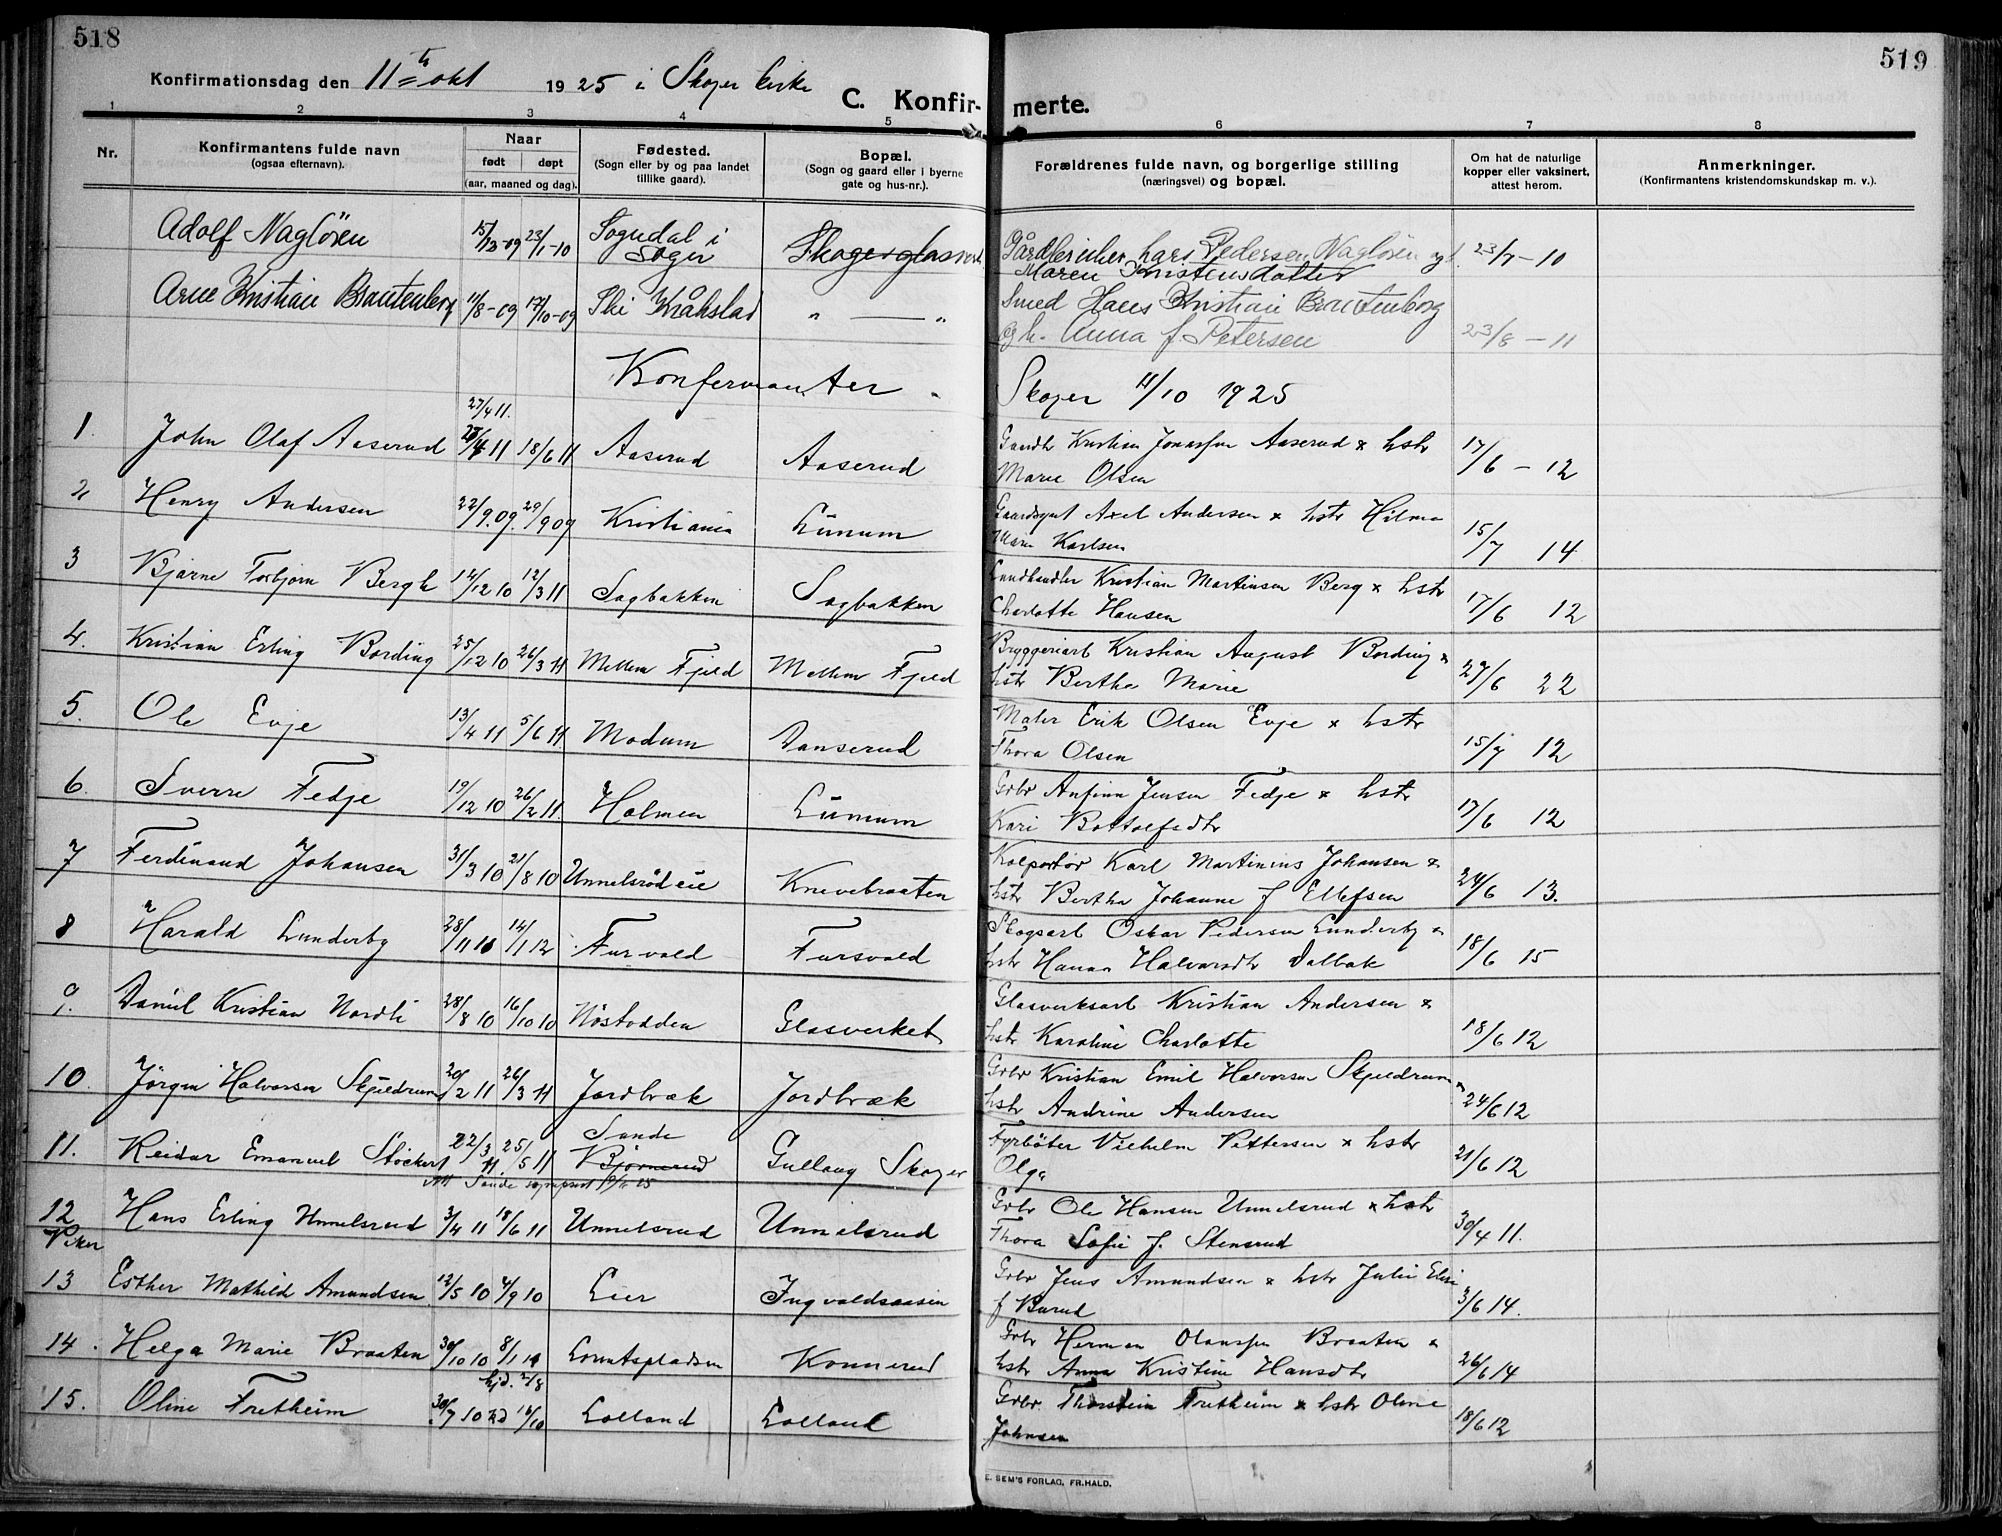 518
519
Konfirmationsdag den 11te okt 1925 i Skoger kirke
C. Konfir-
merte.
1 2 3 4 5 6 7 8
Nr.
Konfirmantens fulde navn
(ogsaa efternavn).
Naar
født døpt
(aar, maaned og dag).
Fødested.
(Sogn eller by og paa landet
tillike gaard).
Bopæl.
(Sogn og gaard eller i byerne
gate og hus-nr.).
Forældrenes fulde navn, og borgerlige stilling
(næringsvei) og bopæl.
Om hat de naturlige
kopper eller vaksinert,
attest herom.
Anmerkninger.
(Konfirmantens kristendomskundskap m. v.).
Adolf Nagløren 15/12-09 23/1-10 Sogndal i Skogerglasverk Lars Pedersen Nagløren og h. 23/7-10
Sogn Maren Kristensdatter
Arne Kristian Brautenberg 11/8-09 17/10-09 Ski Kråkstad " — " Smed Hans Kristian Brautenborg
og h. Anna f. Petersen 23/8-11
Konfermanter. Skoger 11/10 1925
27/4 11.
1. John Olaf Aaserud 18/6 11 Aaserud Aaserud Gaardbr Kristian Jonassen Aaserud & hstr 17/6-12
Marie Olsen
2 Henry Andersen 22/9.09. 29/9 09 Kristiania Lumum Axel Andersen & hstr Hilma
Marie Karlsen 15/7 14
3 Bjarne Torbjørn Bergh 14/12 10 12/3 11 Sagbakken Sagbakken Landhandler Kristian Martinsen Berg & hstr
Charlotte Hansen 17/6 12
4. Kristian Erling Bording 25/12 10 26/3 11 Mellem Fjeld Mellem Fjeld Bryggeriarb Kristian August Bording &
hstr Bertha Marie 27/6 22
5. Ole Evje 13/4 11 5/6 11 Modum Danserud Maler Erik Olsen Evje & hstr
Thora Olsen 15/7 12
6. Sverre Fedje 19/12 10 26/2 11. Holmen Lumum Grbr Anfinn Jensen Fedje & hstr
Kari Bottolfsdtr 17/6 12
7 Ferdinand Johansen 31/3 10 21/8 10 Unnelsrød eie Knivebraaten Kolportør Karl Martinius Johansen &
hstr Bertha Johanne f Ellefsen 24/6 13.
8 Harald Lunderby 28/11 10 14/1 12 Fursvold Fursvold Skogsarb Oskar Pedersen Lunderby &
hstr Hanna Halvorsdtr Dalbak 18/6 15
9. Daniel Kristian Nordli 28/8 10 16/10 10 Nøstodden Glasverket Glasverksarb Kristian Andersen &
hstr Karoline Charlotte 18/6 12
10. Jörgen Halvorsen Skjeldrum 20/2 11 26/3 11 Jordbræk Jordbræk Grbr Kristian Emil Halvorsen Skjeldrum &
hstr Andrine Andersen 24/6 12
11. Reidar Emanuel Støckert 22/3 11. 25/5 11 Sande Bjørnerud Gullaug Skoger Fyrbøter Vilhelm Pettersen & hstr
Olga 21/6 12
Att Sande
12 Hans Erling Unnelsrud 3/4 11 18/6 11 Unnelsrud Unnelsrud Grbr Ole Hansen Unnelsrud & hstr
Thora Sofie f. Stensrud 30/4 11.
Piker
13 Esther Mathilde Amundsen 12/5 10 4/9 10 Lier Ingvaldsaasen Grbr Jens Amundsen & hstr Julie Elise
f Burud 3/6 14.
14. Helga Marie Braaten 30/10 10 8/1 11 Lorentspladsen Konnerud Grbr Herman Olaussen Braaten &
hstr Anna Kristine Hansdtr 26/6 14
hjd. 2/8
15. Oline Fretheim 30/7 10 16/10 Lolland Lolland Grbr Thorstein Fretheim & hstr Oline
Johnsen 18/6 12
E. SEM'S FORLAG, FR.HALD.